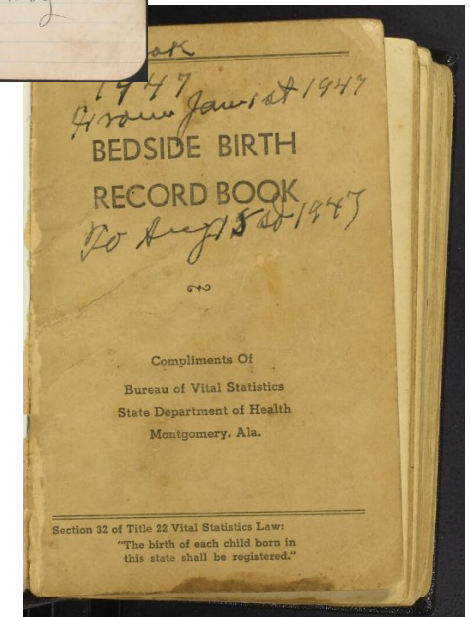 ook
1947
From Jan 1st 1947
BEDSIDE BIRTH
RECORD BOOK
To Aug 1947
Compliments Of
Bureau of Vital Statistics
State Department of Health
Montgomery, Ala.
Section 32 of Title 22 Vital Statistics Law:
"The birth of each child born in
this state shall be registered."